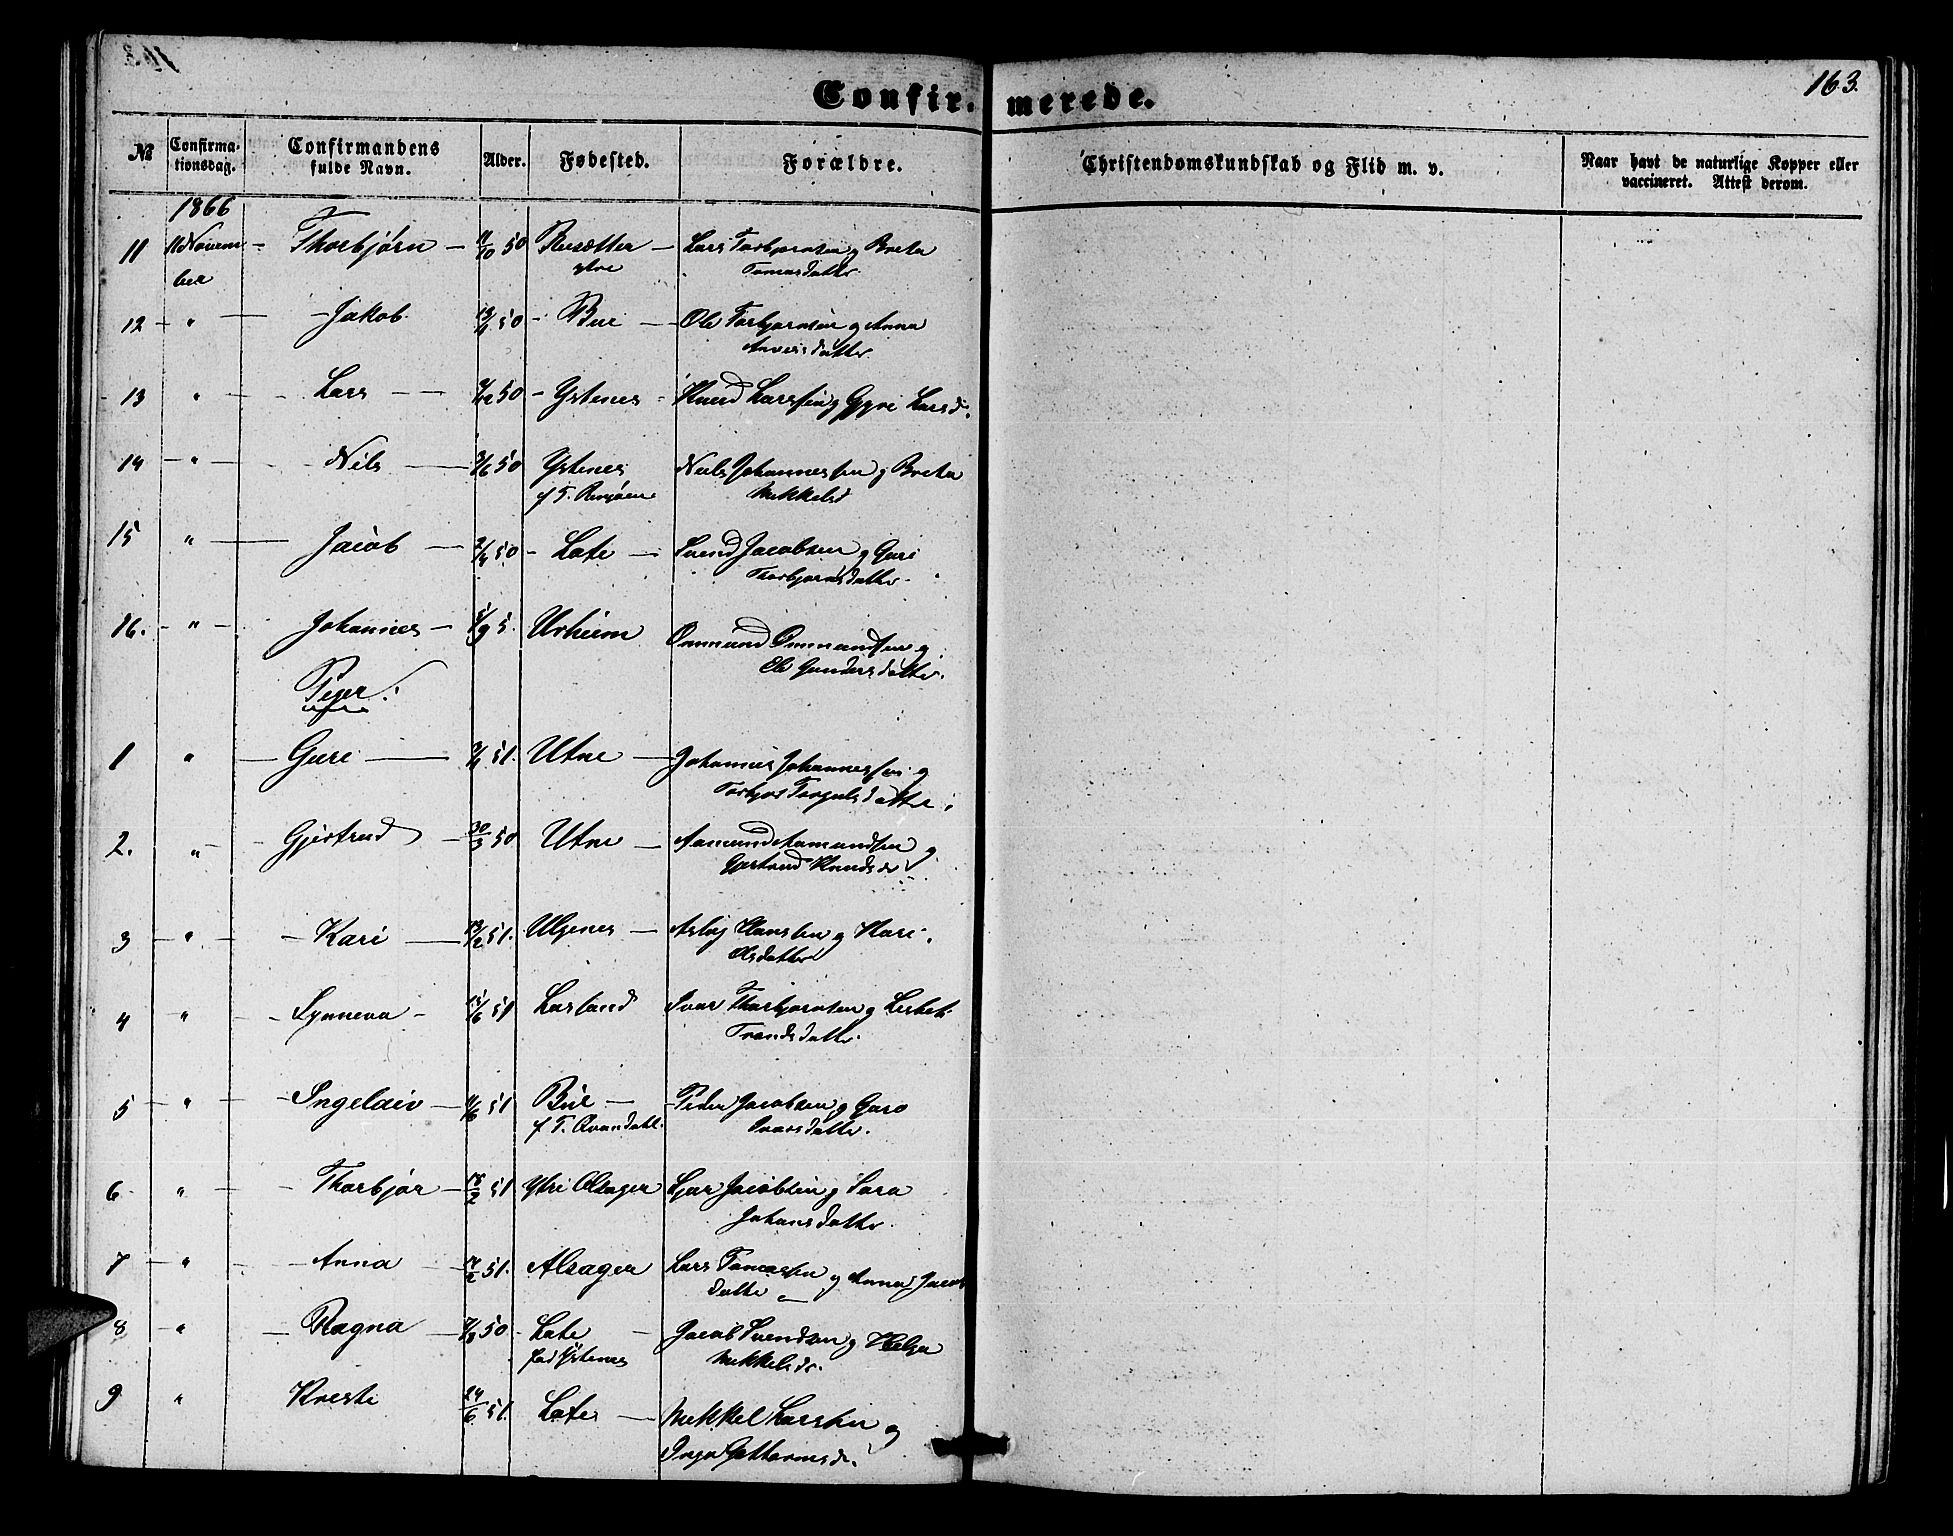 163.
Confir- merede.
№ Confirma-tionsdag. Confirmandens fulde Navn. Alder. Fødested. Forældre. Christendomskundskab og Flid m. v. Naar havt de naturlige Kopper eller vaccineret. Attest derom.
1866
11 11 Novem- Thorbjörn 11/10 50 Rusætter Lars Torbjørnsen og Breta
ber ytre Tomasdatter
12 " Jakob 50 Bue Ole Torbjørnsen og Anna
datter
13 " Lars 50 Ystenes Knud Larssen og Gyri Larsd.
14 " Nils 50 Ystenes Nils Johannessen og Breta
f T. Mikkelsd
15 " Jacob 50 Lote Svend Jacobsen og Guri
Thorbjørnsdatter
16. " Johannes 5. Urheim Ommund Ommundsen og
Gundersdatter.
Piger:
1 " Guri 51. Utne Johannes Johannessen og
Torbjør datter
2. " Gjertrud 30/3 50 Utne Aamund Aamundsen og
Gjertrud Knudsd
3 " Kari 51. Ulgenes Aslag Hansen og Kari
Olsdatter
4 " Synneva 15/6 51 Lusland Ivar Thorbjørnsen og Lisbet
Trondsdatter
5 " Ingeleiv 51 Bue Peder Jacobsen og Guro
f T. Qvandahl. Ivarsdatter.
6. " Thorbjør 18/2 51 Ytre Alsager Sjur Jacobsen og Sara
Johansdatter.
7 " Anna 51. Alsager Lars Tomassen og Anna Jacobs
datter
8 " Ragna 50 Lote Jacob Svendsen og Helga
fød Ystenes Mikkelsdr.
9 " Kristi 24/6 51. Lote Mikkel Larssen og
Inga Guttormsd.